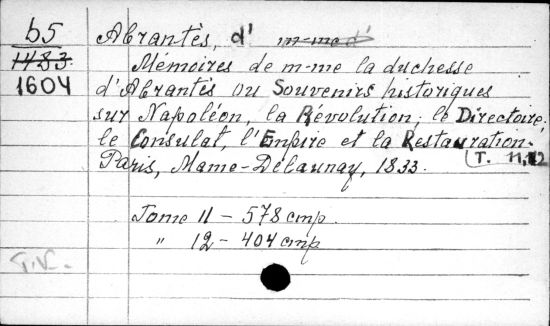 b5
1483.
1604
Abrantès, d' m-me d'
Mémoires de m-me la duchesse
d'Abrantès ou Souvenirs historiques
sur Napoléon, la Révolution, le Directoire,
le Consulat, l'Empire et la Restauration.
Paris, Mame-Delaunay, 1833. T. 11, 12
Tome 11 - 578 cmp.
" 12 - 404 cmp